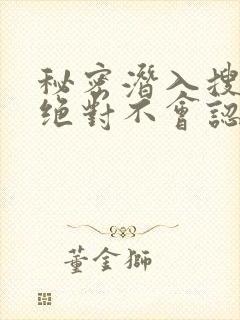 秘密潛入搜
絕對不會認
董金獅